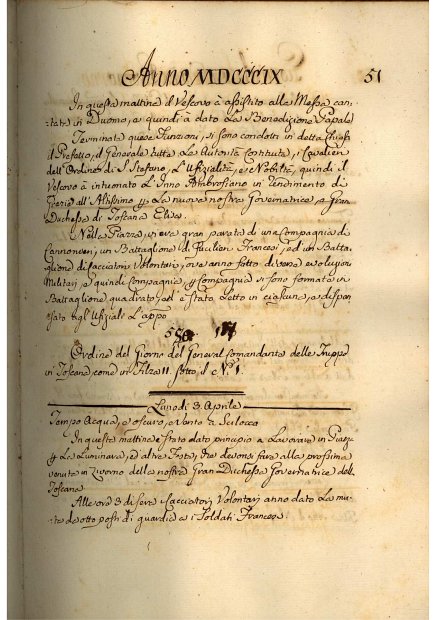 Anno MDCCCIX 51
In questa mattina il Vescovo à assistito alla Messa can-
tata in Duomo, e quindi à dato La Benedizione Papale
Terminate quese Funzioni, si sono condotti in detta Chiesa
il Prefetto, il Generale, tutte Le Autorità Costituite, i Cavalieri
dell'Ordine di S. Stefano, L'Ufizialità, e Nobiltà, quindi il
Vescovo à intuonato L'Inno Ambrosiano in rendimento di
Grazie all'Altissimo p. La nuova nostra Governatrice, e Gran
Duchessa di Toscana Elisa.
Nella Piazza vi era gran parata di una Compagnia di
Cannonieri, un Battaglione di Fucilieri Francesi, ed un Batta-
glione di Cacciatori Volontari, ove anno fatto diverse evoluzioni
Militari, e quindi Compagnia p. Compagnia si sono formate in
Battaglione quadrato, ed è stato Letto in ciascuna, e dispen-
sato agl'Ufiziali L'appo
Ordine del Giorno del General Comandante delle Truppe
in Toscana, come in Filza II. sotto il N.° 1.
Lunedì 3 Aprile
Tempo Acqua, e oscuro, e Vento a Scilocco
In questa mattina è stato dato principio a Lavorare in Piazza
p. Le Luminare, ed altre Feste, che devonsi fare alla prossima
venuta in Livorno della nostra Gran Duchessa Governatrice della
Toscana
Alle ore 3 di sera i Cacciatori Volontari anno dato La mu-
ta de otto posti di guardia a i Soldati Francesi